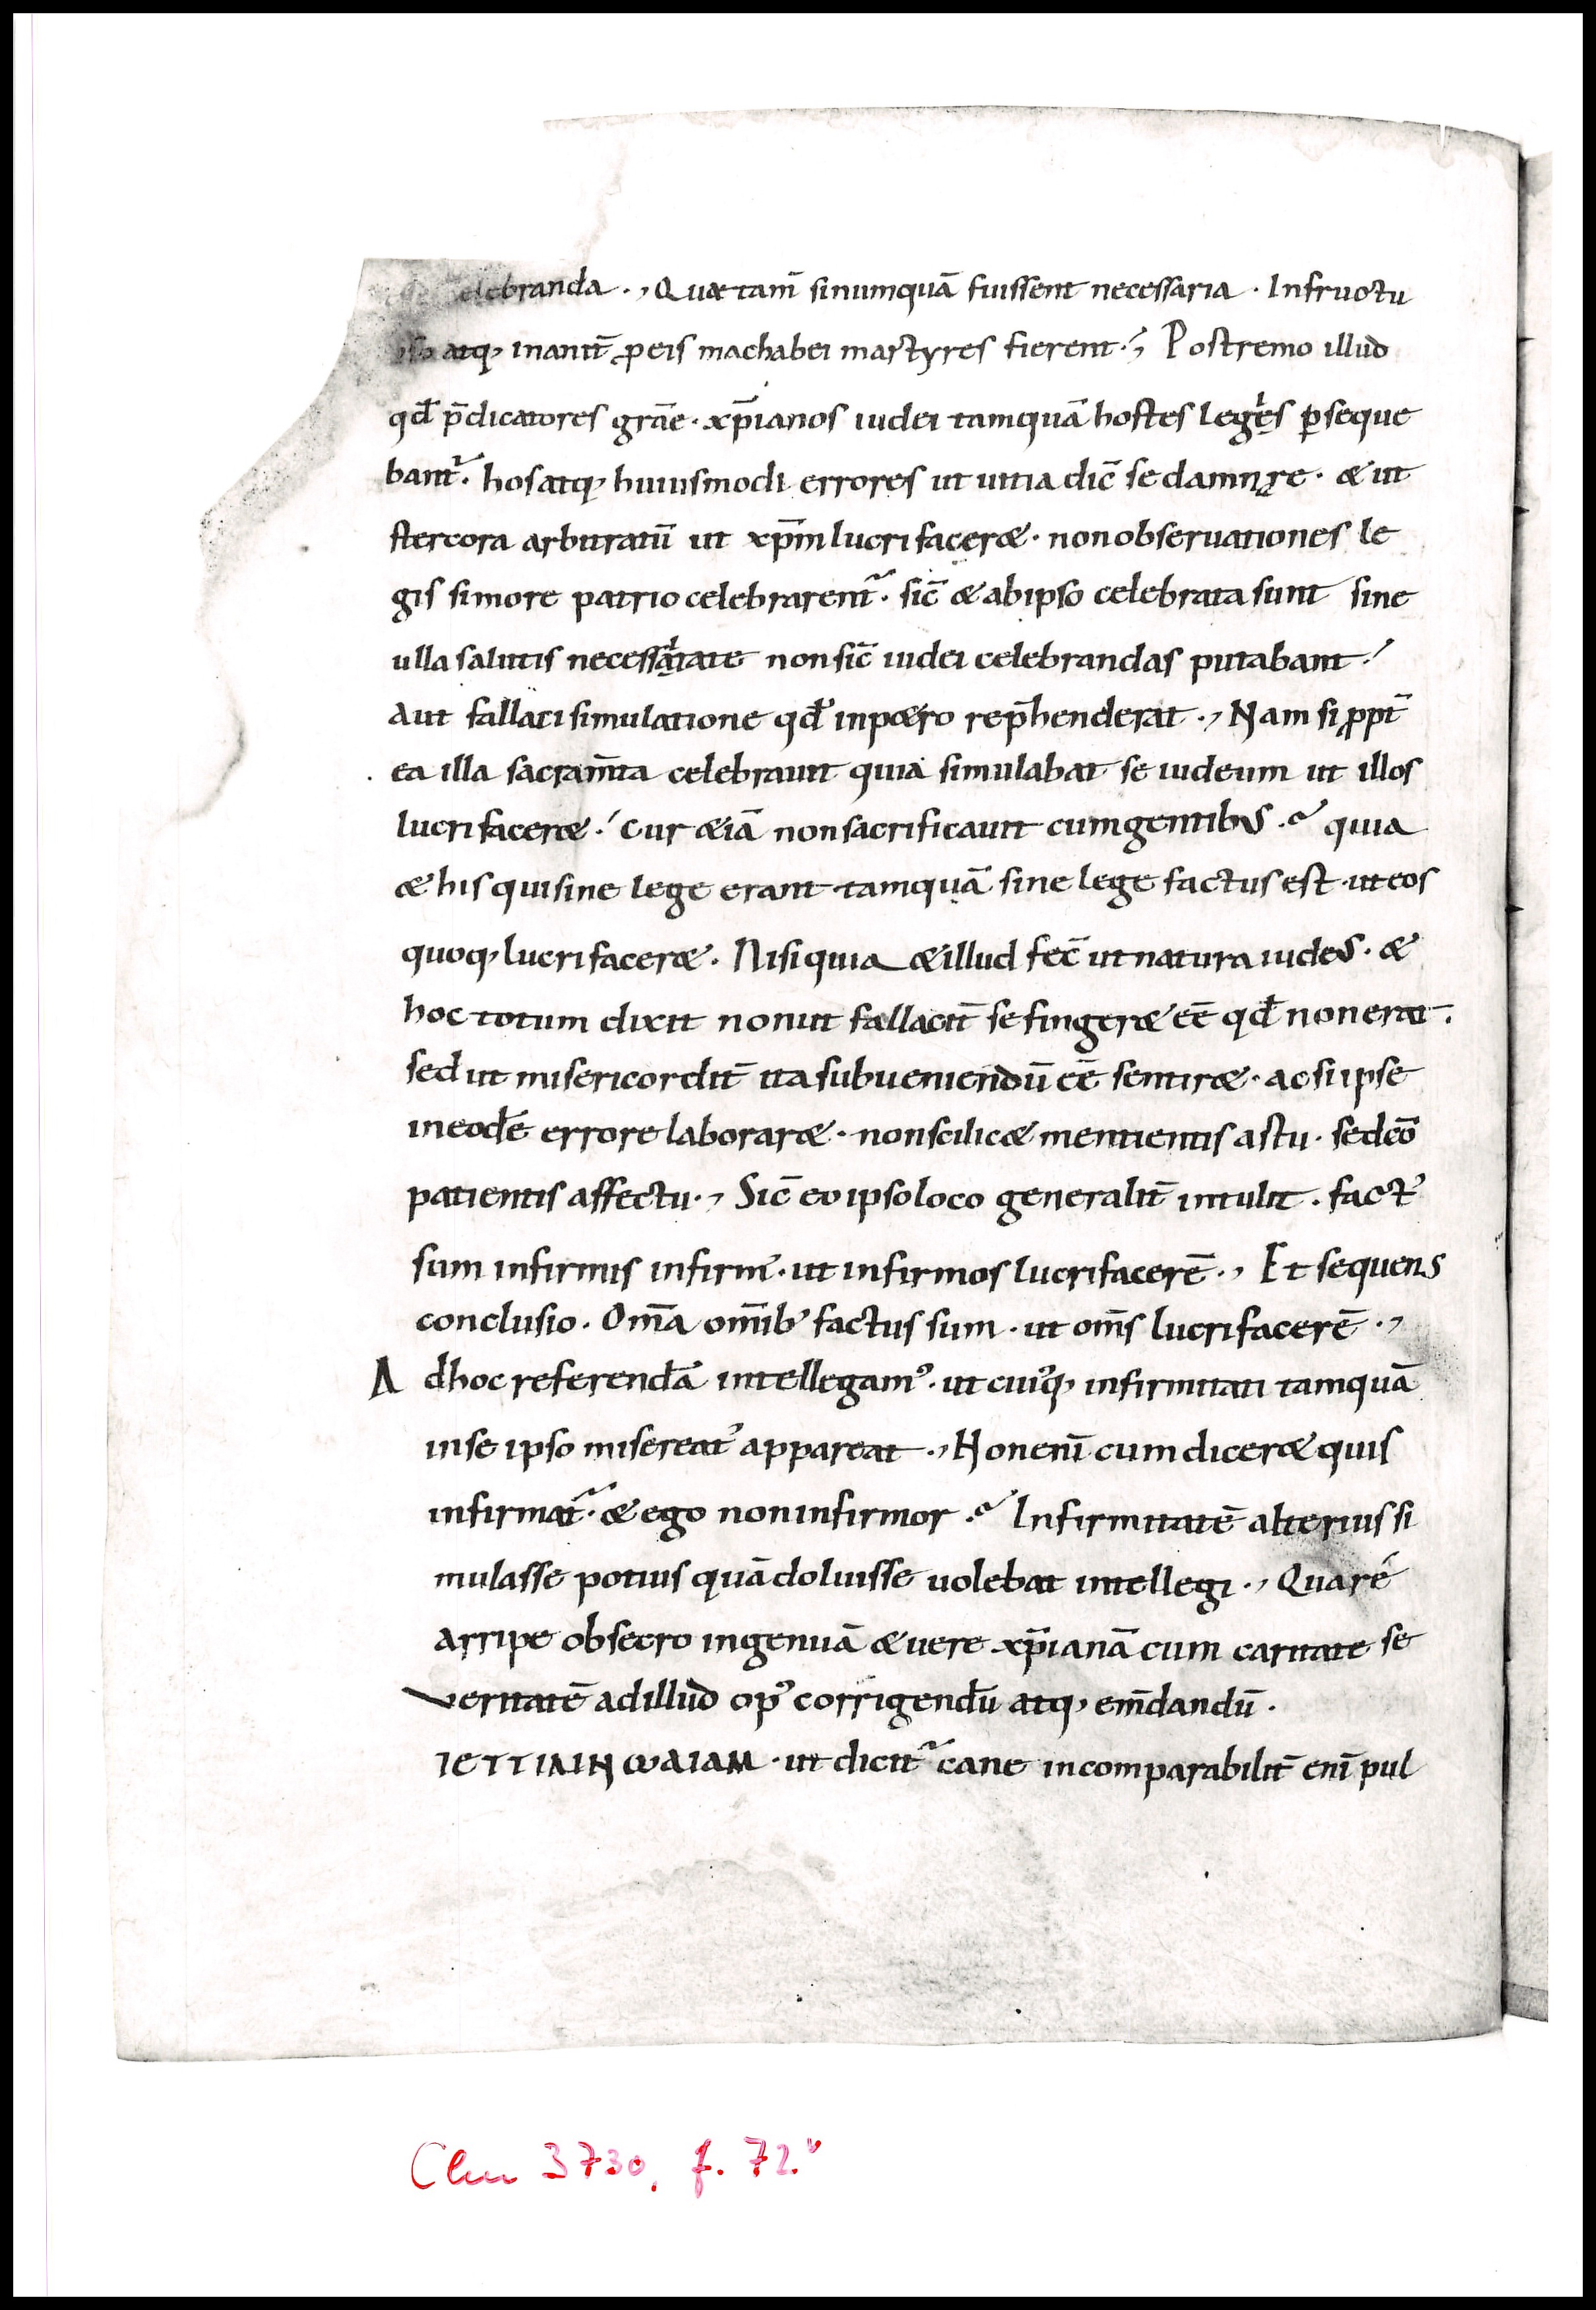 celebranda ., Quae tam̄ si numquā fuissent necessaria . Infructu
oso atq, inanit̄ ꝓ eis machabei martyres fierent ., Postremo illud
qđ p̄dicatores grāe . xp̄ianos iudei tamquā hostes leges ꝑseque
bant᷑ . hos atq, huiusmodi errores ut uitia dic̄ se damnare . & ut
stercora arbitratū ut xp̄m lucri facer& . non obseruationes le
gis si more patrio celebrarent᷑ . sic̄ & ab ipso celebrata sunt sine
ulla salutis necessitate non sic̄ iudei celebrandas putabant ./
Aut fallaci simulatione qđ in p&ro rep̄henderat ., Nam si ꝓpt̄
ea illa sacram̄ta celebrauit quia simulabat se iudeum ut illos
lucri facer& ./ Cur &iā non sacrificauit cum gentibus .? quia
& his qui sine lege erant tamquā sine lege factus est ut eos
quoq, lucri facer& . Nisi quia & illud fec̄ ut natura iudeus . &
hoc totum dixit non ut fallacit̄ se finger& eē qđ non erat .
sed ut misericordit̄ ita subueniendū eē sentir& . ac si ipse
in eodē errore laborar& . non scilic& mentientis astu . sed cō
patientis affectu ., Sic̄ eo ipso loco generalit̄ intulit . fact᾽
sum infirmis infirm᾽ . ut infirmos lucri facerē ., Et sequens
conclusio . Om̄a om̄ib᾽ factus sum . ut om̄s lucri facerē .,
Ad hoc referendā intellegam᾽ . ut cui᾽q, infirmitati tamquā
in se ipso misereat᾽ appareat ., Non enī cum dicer& quis
infirmat᷑ . & ego non infirmor .? Infirmitatē alterius si
mulasse potius quā doluisse uolebat intellegi ., Quare
arripe obsecro ingenuā & uere xp̄ianā cum caritate se
ueritatē ad illud op᾽ corrigendū atq, em̄dandū .
ut dicit᷑ cane incomparabilit̄ enī pul
Clm 3730, f. 72.v